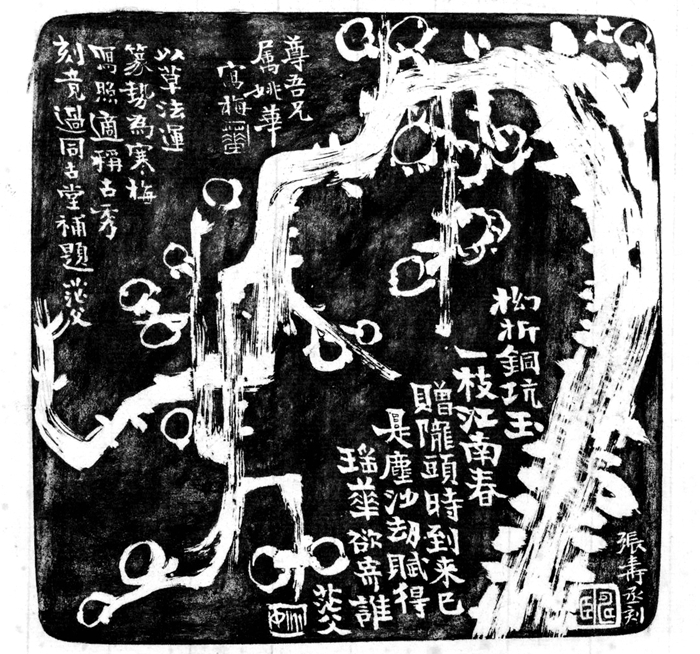 尊吾兄
属姚華
寫梅
以草法運
篆勢為寒梅
寫照適稱古秀
刻竟過同古堂補題 茫父
拗折銅坑玉
一枝江南春
贈隴頭時到来已
是塵沙劫賦得
瑤華欲寄誰
茫父
張壽丞刻